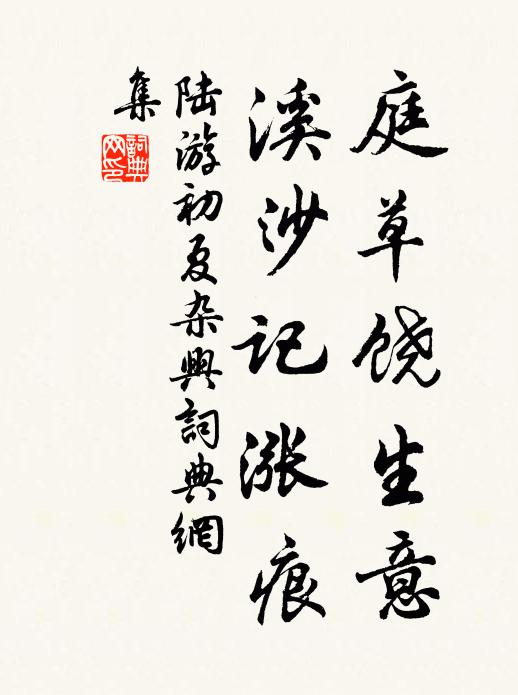 庭草饶生意
溪沙记涨痕
陆游初夏杂興詞典網
集
詞典
网印